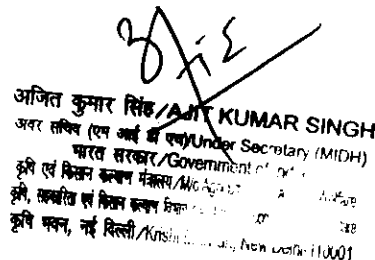 अजित कुमार सिंह/AJIT KUMAR SINGH
अवर सचिव (एम आई डी एच)/Under Secretary (MIDH)
भारत सरकार/Government of
कृषि एवं किसान कल्याण मंत्रालय/
कृषि, सहकारिता एवं किसान कल्याण विभाग
कृषि भवन, नई दिल्ली/Krishi New Delhi-110001